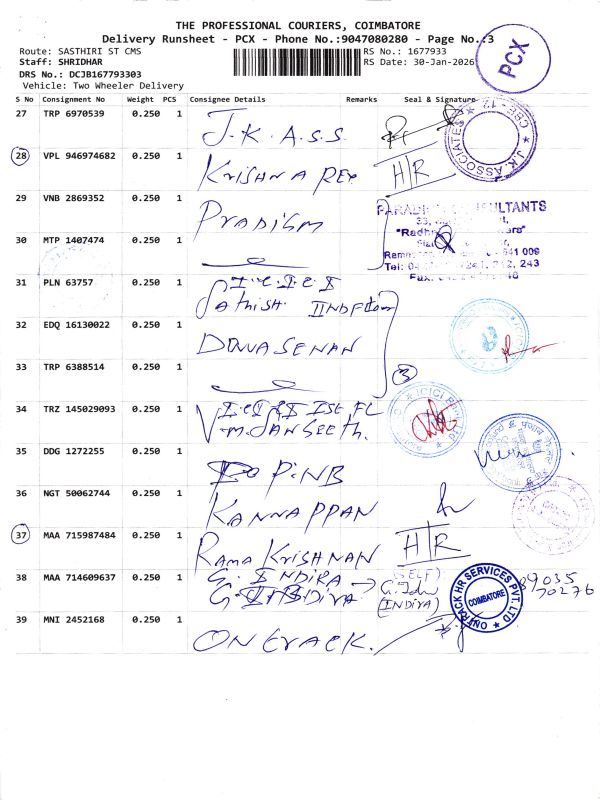 THE PROFESSIONAL COURIERS, COIMBATORE
Delivery Runsheet - PCX - Phone No.:9047080280 - Page No.:3
Route: SASTHIRI ST CMS
RS No.: 1677933
Staff: SHRIDHAR
RS Date: 30-Jan-2026
DRS No.: DCJB167793303
Vehicle: Two Wheeler Delivery
PCX
S No Consignment No Weight PCS Consignee Details Remarks Seal & Signature
27 TRP 6970539 0.250 1 J.K.A.S.S.
J.K. ASSOCIATES ★ CBE-12
28 VPL 946974682 0.250 1 KRISHNA H/R
29 VNB 2869352 0.250 1 PRADIGM
ULTANTS
"Radh
641 009
242, 243
Fax:
30 MTP 1407474 0.250 1
31 PLN 63757 0.250 1 I.C.I.C.I
Sathish IIND Floor
32 EDQ 16130022 0.250 1 DEVASENAN
33 TRP 6388514 0.250 1
3
34 TRZ 145029093 0.250 1 ICICI Ist FL
M. SANGEETH.
35 DDG 1272255 0.250 1 PNB
36 NGT 50062744 0.250 1 KANNAPPAN
37 MAA 715987484 0.250 1 RAMA KRISHNAN H/R
38 MAA 714609637 0.250 1 G. INDIRA
(SELF)
(INDIRA)
89035
70276
39 MNI 2452168 0.250 1 ONTRACK.
ONTRACK HR SERVICES PVT. LTD
COIMBATORE